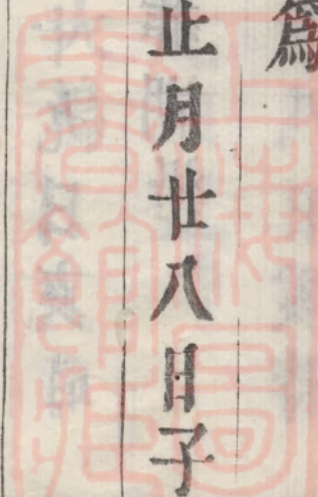 爲
正月廿八日子